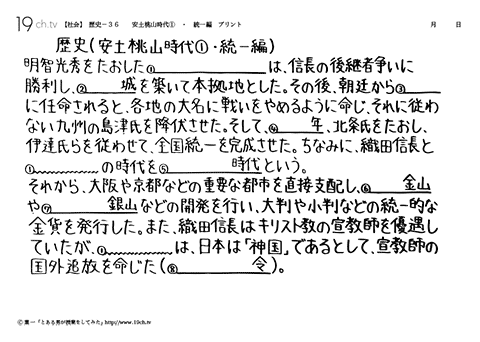 19ch.tv 【社会】 歴史－３６ 安土桃山時代① ・ 統一編 プリント 月 日
歴史(安土桃山時代①・統一編)
明智光秀をたおした① は、信長の後継者争いに
勝利し、② 城を築いて本拠地とした。その後、朝廷から③
に任命されると、各地の大名に戦いをやめるように命じ、それに従わ
ない九州の島津氏を降伏させた。そして、④ 年、北条氏をたおし、
伊達氏らを従わせて、全国統一を完成させた。ちなみに、織田信長と
① の時代を⑤ 時代という。
それから、大阪や京都などの重要な都市を直接支配し、⑥ 金山
や⑦ 銀山などの開発を行い、大判や小判などの統一的な
金貨を発行した。また、織田信長はキリスト教の宣教師を優遇し
ていたが、① は、日本は「神国」であるとして、宣教師の
国外追放を命じた(⑧ 令)。
© 葉一「とある男が授業をしてみた」http://www.19ch.tv